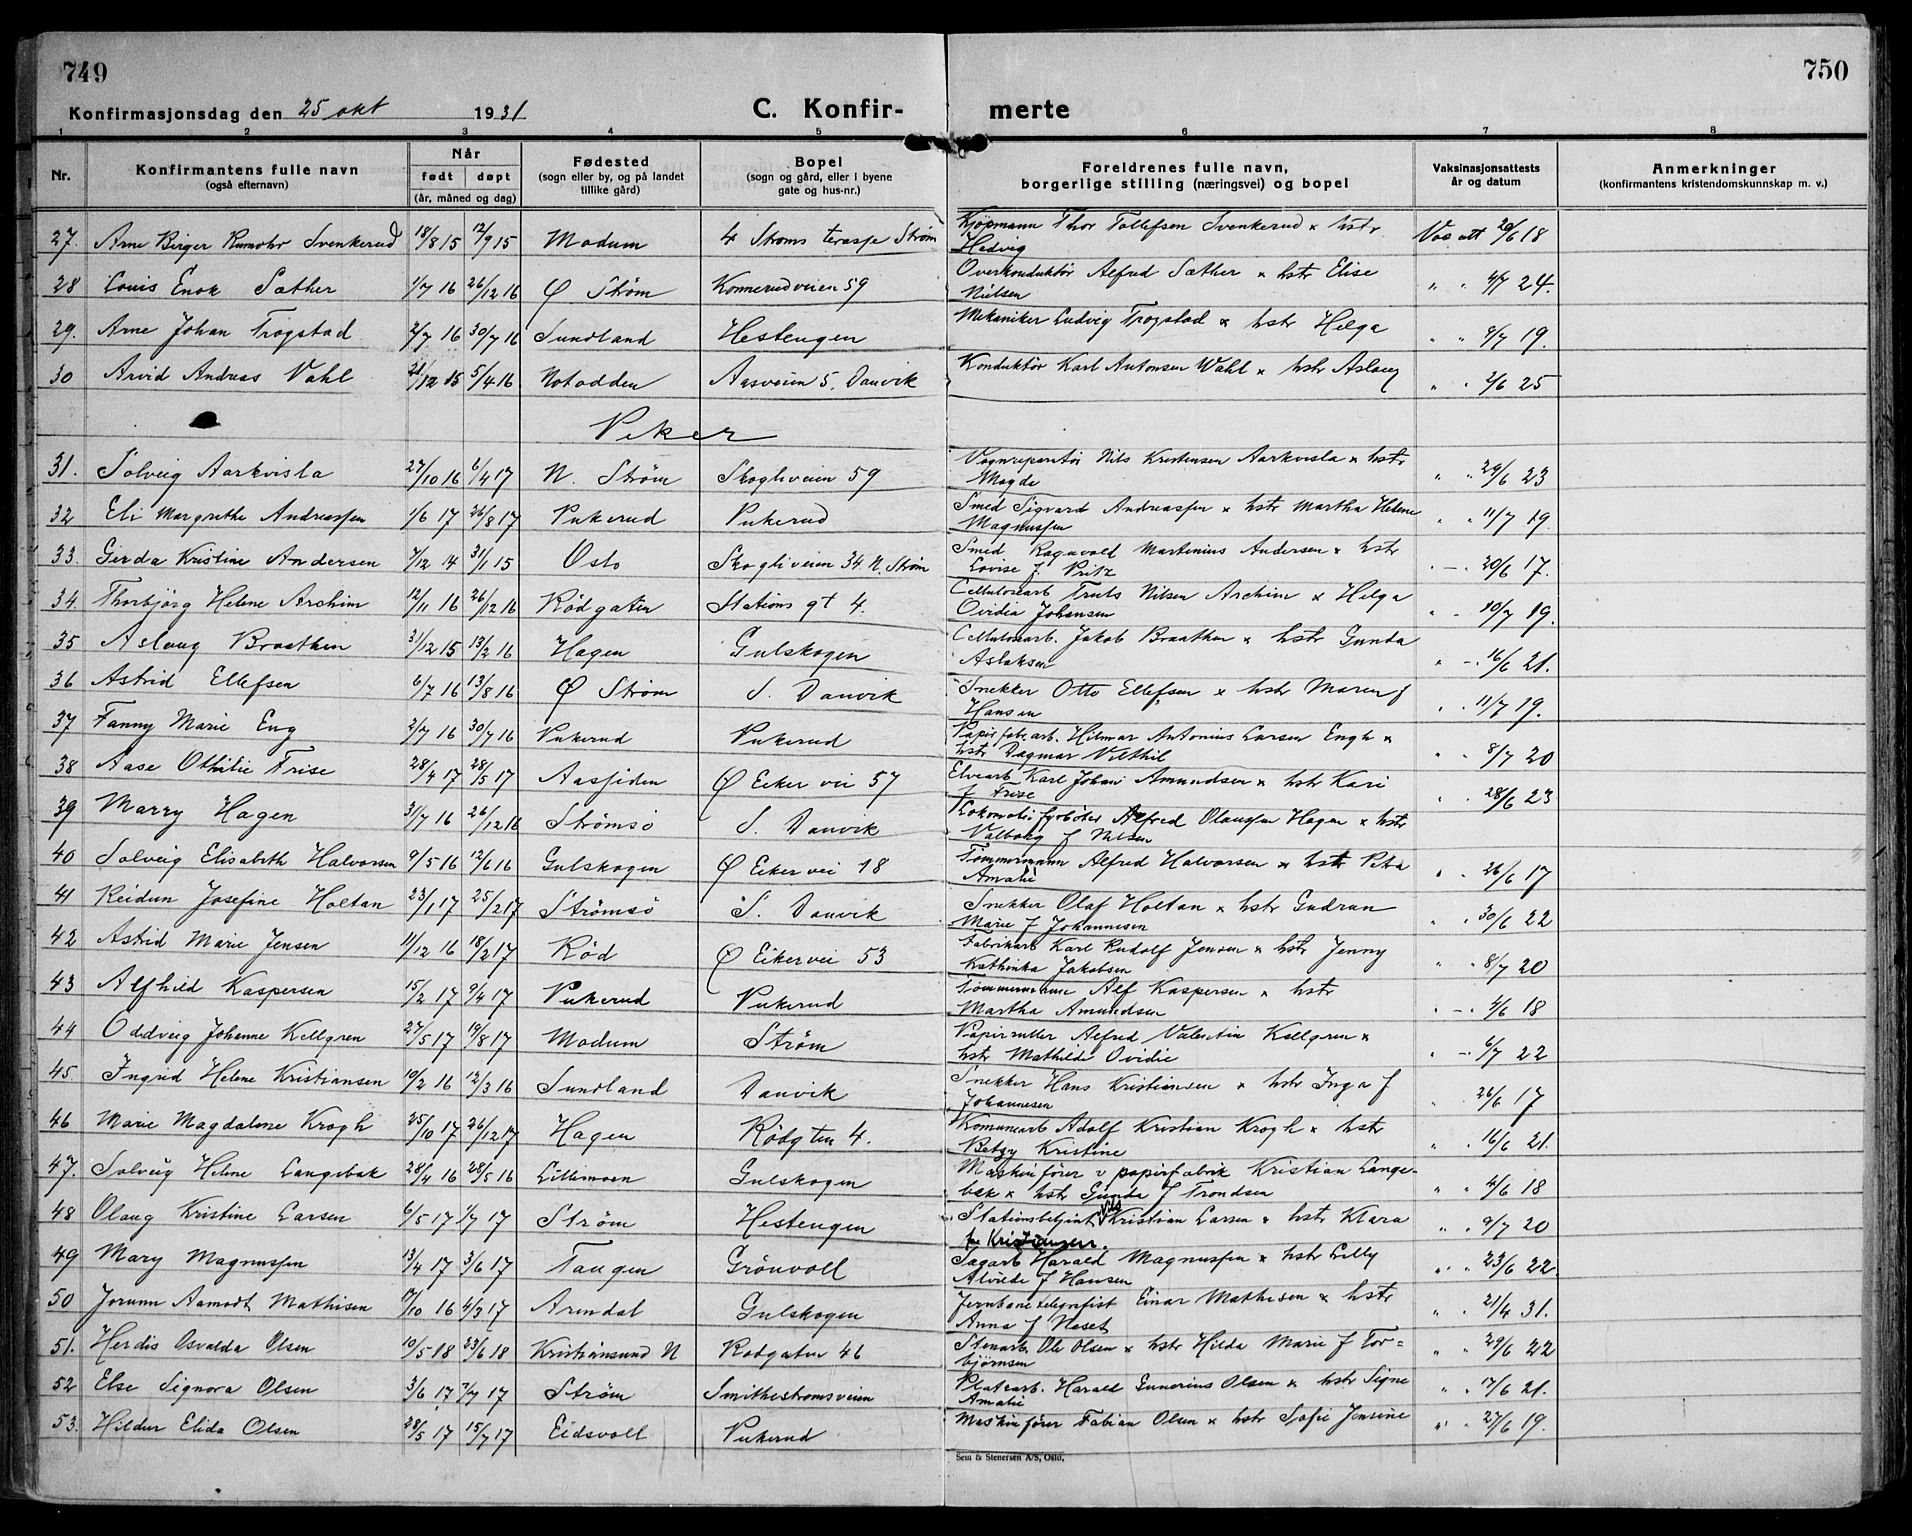 749
750
Konfirmasjonsdag den 25 okt 1931
C. Konfirmerte
1 2 3 4 5 6 7 8
Nr. Konfirmantens fulle navn (også efternavn) Når født døpt (år, måned og dag) Fødested (sogn eller by, og på landet tillike gård) Bopel (sogn og gård, eller i byene gate og hus-nr.) Foreldrenes fulle navn, borgerlige stilling (næringsvei) og bopel Vaksinasjonsattests år og datum Anmerkninger (konfirmantens kristendomskunnskap m. v.)
27. Arne Birger Rumohr Svenkerud 18/8 15 12/9 15 Modum 4 Strøms terasse Strøm Kjøpmann Thor Tollefsen Svenkerud x hstr Hedvig Vac att 20/6 18
28 Louis Enok Sæther 1/7 16 26/12 16 Ø Strøm Konnerudveien 59 Overkonduktør Alfred Sæther x hstr Elise Nielsen " " 4/7 24.
29. Arne Johan Trogstad 2/7 16 30/7 16 Sundland Hestengen Mekaniker Ludvig Trogstad x hstr Helga " " 8/7 19.
30 Arvid Andreas Vahl 21/12 15 5/4 16 Notodden Aasveien 5, Danvik Konduktør Karl Antonsen Wahl x hstr Aslaug " " 2/6 25
Piker
31. Solveig Aarkvisla 27/10 16 6/4 17 N. Strøm Skogliveien 59 Vognreparatør Nils Kristensen Aarkvisla x hstr Magda " " 29/6 23
32 Eli Margrethe Andreassen 1/6 17 26/8 17 Pukerud Pukerud Smed Sigvard Andreassen x hstr Martha Helene Magnussen " " 11/7 19.
33. Gerda Kristine Andersen 7/12 14 31/1 15 Oslo Skogliveien 34 N. Strøm Smed Ragnvald Martinius Andersen x hstr Lovise f. Pritz " " 20/6 17.
34. Thorbjørg Helene Archim 12/11 16 26/12 16 Rödgaten Stations gt 4. Cellulosearb Truls Nilsen Archim x Helga Ovidia Johansen " " 10/7 19.
35 Aslaug Braathen 31/12 15 13/2 16 Hagen Gulskogen Cellulosearb. Jakob Braathen x hstr Gunda Aslaksen " " 16/6 21.
36 Astrid Ellefsen 6/7 16 13/8 16 Ø Strøm S. Danvik Snekker Otto Ellefsen x hstr Maren f Hansen " " 11/7 19.
37 Fanny Marie Eng 2/7 16 30/7 16 Pukerud Pukerud Papirfabr.arb. Hilmar Antonius Larsen Engh x hstr Dagmar " " 8/7 20
38 Aase Othilie Frise 28/4 17 28/5 17 Aassiden Ø Eiker vei 57 Elvearb Karl Johan Amundsen x hstr Kari f Frise " " 28/6 23
39 Marry Hagen 31/7 16 26/12 16 Strømsø S. Danvik Lokomotivfyrbøter Alfred Olaussen Hagen x hstr Valborg f Nilsen
40 Solveig Elisabeth Halvorsen 9/5 16 12/6 16 Gulskogen Ø Eiker vei 18 Tømmermann Alfred Halvorsen x hstr Petra Amalie " " 26/6 17
41 Reidun Josefine Holtan 23/1 17 25/2 17 Strømsø S. Danvik Snekker Olaf Holtan x hstr Gudrun Marie f Johannesen " " 30/6 22
42 Astrid Marie Jensen 11/12 16 18/2 17 Röd Ø Eikervei 53 Fabrikarb Karl Rudolf Jensen x hstr Jenny Kathinka Jakobsen " " 8/7 20
43 Alfhild Kaspersen 15/2 17 9/4 17 Pukerud Pukerud Tømmermann Alf Kaspersen x hstr Martha Amundsen " " 4/6 18
44 Oddveig Johanne Kellgren 27/5 17 19/8 17 Modum Strøm Papirruller Alfred Valentin Kellgren x hstr Mathilde Ovidie " " 6/7 22
45. Ingrid Helene Kristiansen 10/2 16 12/3 16 Sundland Danvik Snekker Hans Kristiansen x hstr Inga f Johannesen " " 26/6 17
46 Marie Magdalene Krogh 25/10 17 26/12 17 Hagen Rödgten 4. Komunearb Adolf Kristian Krogh x hstr Betzy Kristine " " 16/6 21.
47. Solveig Helene Langebak 28/4 16 28/5 16 Lillemoen Gulskogen Maskinfører v papirfabrik Kristian Langebak x hstr Gunda f Trondsen " " 4/6 18
48 Olaug Kristine Larsen 6/5 17 1/7 17 Strøm Hestengen Stationsbetjent Nils Kristian Larsen x hstr Klara Kristiansen. " " 9/7 20
49 Mary Magnussen 13/4 17 3/6 17 Tangen Grönvoll Sagarb Harald Magnussen x hstr Lilly Alvilde f Hansen " " 23/6 22
50 Jorunn Aamodt Mathisen 17/10 16 4/3 17 Arendal Gulskogen Jernbanetelegrafist Einar Mathisen x hstr Anna f Neset " " 21/4 31.
51. Herdis Osvalda Olsen 10/5 18 23/6 18 Kristiansund N Rodgaten 46 Stenarb. Ole Olsen x hstr Hilda Marie f Torbjørnsen " " 29/6 22
52 Else Signora Olsen 3/6 17 7/7 17 Strøm Smithestromsveien Platearb. Harald Gunerius Olsen x hstr Signe Amalie " " 17/6 21.
53. Hildur Elida Olsen 28/5 17 15/7 17 Eidsvoll Pukerud Maskinfører Fabian Olsen x hstr Sofie Jensine " " 27/6 19.
Sem & Stenersen A/S, Oslo.